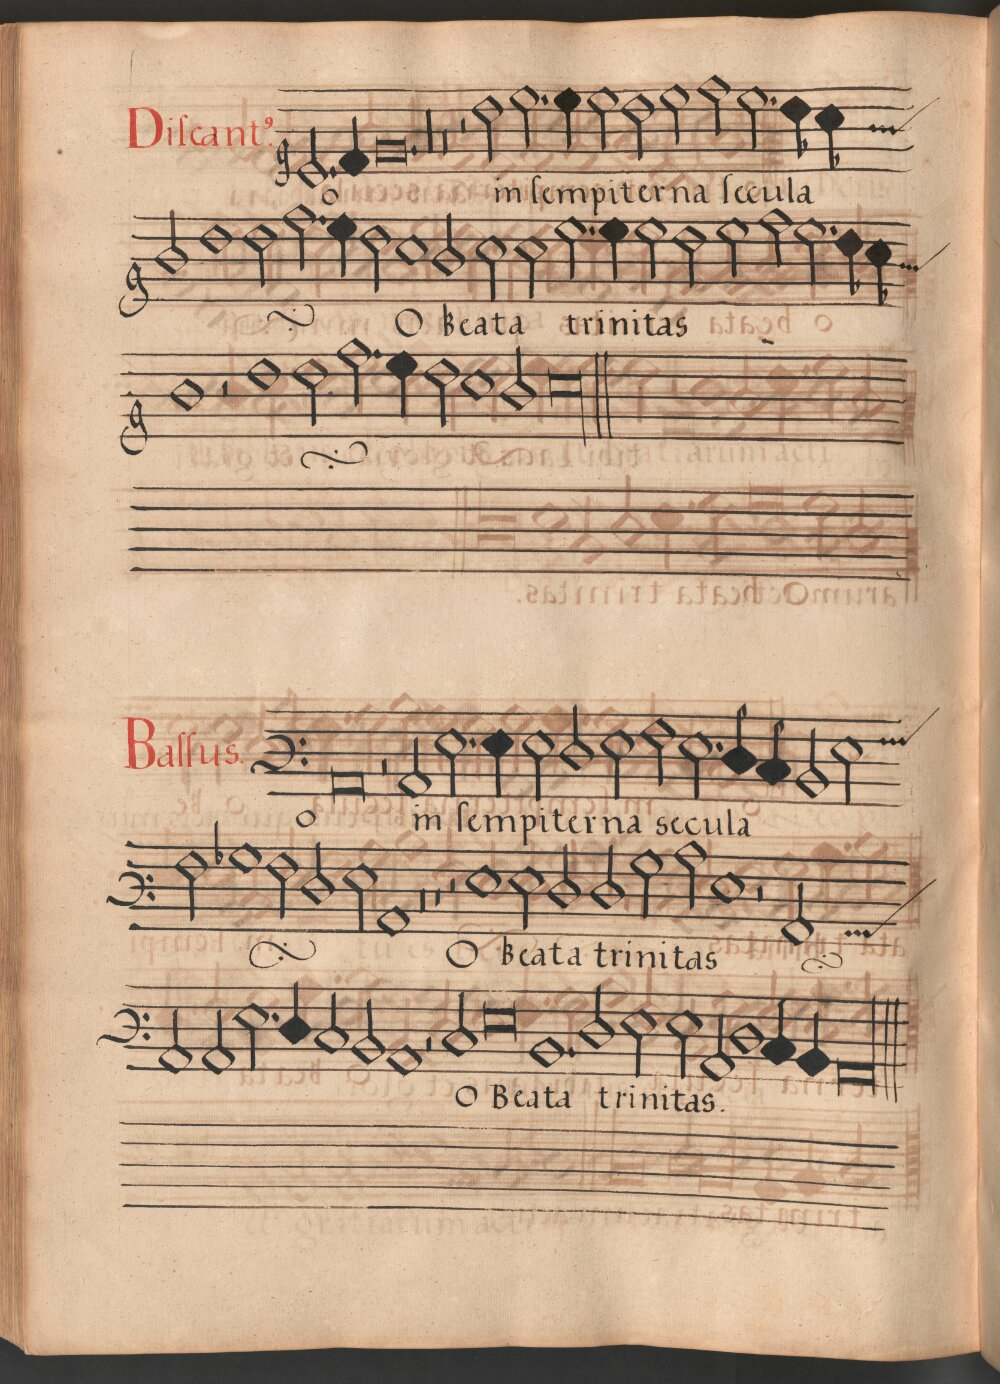 Discantꝰ.
o in sempiterna secula
O Beata trinitas
Bassus.
o in sempiterna secula
O Beata trinitas
O Beata trinitas.